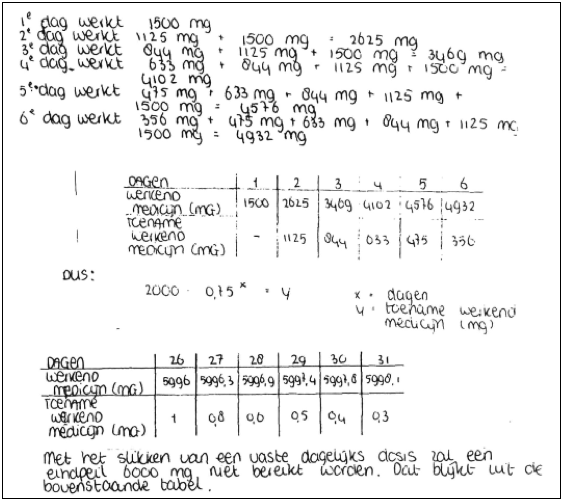 1e dag werkt 1500 mg
2e dag werkt 1125 mg + 1500 mg = 2625 mg
3e dag werkt 844 mg + 1125 mg + 1500 mg = 3469 mg
4e dag werkt 633 mg + 844 mg + 1125 mg + 1500 mg =
4102 mg
5e dag werkt 475 mg + 633 mg + 844 mg + 1125 mg +
1500 mg = 4576 mg
6e dag werkt 356 mg + 475 mg + 633 mg + 844 mg + 1125 mg
1500 mg = 4932 mg
DAGEN 1 2 3 4 5 6
WERKEND MEDICIJN (MG) 1500 2625 3469 4102 4576 4932
TOENAME WERKEND MEDICIJN (MG) - 1125 844 633 475 356
DUS:
2000 · 0,75^x = y
x = dagen
y = toename werkend
medicijn (mg)
DAGEN 26 27 28 29 30 31
WERKEND MEDICIJN (MG) 5996 5996,3 5996,9 5997,4 5997,8 5998,1
TOENAME WERKEND MEDICIJN (MG) 1 0,8 0,6 0,5 0,4 0,3
Met het slikken van een vaste dagelijks dosis zal een
eindpeil 6000 mg niet bereikt worden. Dat blijkt uit de
bovenstaande tabel.